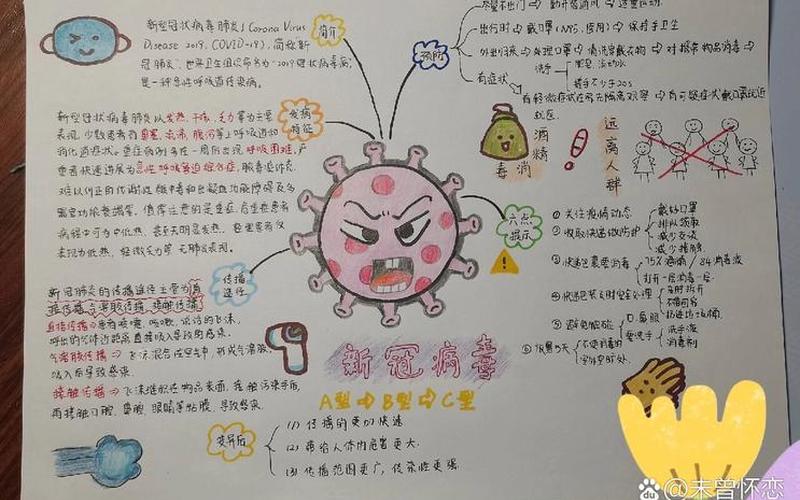 新型冠状病毒肺炎(Corona Virus
Disease 2019, COVID-19), 简称"新
冠肺炎", 世界卫生组织命名为"2019冠状病毒病",
是一种急性呼吸道传染病。
简介
新型冠状病毒肺炎以发热、干咳、乏力等为主要
表现, 少数患者有鼻塞、流涕、腹泻等上呼吸道和
消化道症状。重症病例多在一周后出现呼吸困难, 严
重者快速进展为急性呼吸窘迫综合征、脓毒症休克、
难以纠正的代谢性酸中毒和出凝血功能障碍及多
器官功能衰竭等。值得注意的是重症、危重症患者
病程中可为中低热, 甚至无明显发热。轻型患者仅
表现为低热、轻微乏力等, 无肺炎表现。
发病
特征
新冠肺炎的传播途径主要为直
接传播、气溶胶传播、接触传播
直接传播⇒患者喷嚏、咳嗽、说话的飞沫,
呼出的气体近距离直接吸入导致的感染。
气溶胶传播⇒飞沫混合在空气中, 形成气溶胶,
吸入后导致感染。
接触传播⇒飞沫沉积在物品表面, 接触污染手后,
再接触口腔、鼻腔、眼睛等粘膜, 导致感染。
传播
途径
预防
尽量不出门→勤开窗通风→适量运动
出行时→戴口罩(N95, 医用)→保持手卫生
外出归来→处理口罩→清洗穿戴衣物→对携带物品消毒
洗手
肥皂, 流动水
搓手不少于20s
有症状
有轻微症状在家先隔离观察→有可疑症状戴口罩就近
就医
酒精
消毒
远离人群
六点
提示
① 关注疫情动态
② 收取快递做防护
戴好口罩
排队领取
减少交谈
减少接触
③ 快递包裹要消毒
75%酒精/84消毒液
打开一层消毒一层
④ 快递包装及时妥善处理
及时拆开
不留可客
⑤ 避免触碰
口、鼻、眼
要洗手
洗手液
消毒剂
新冠病毒
A型⇒B型⇒C型
变异后
(1) 传播的更加快速
(2) 带给人体的危害更大.
(3) 传播范围更广, 传染性更强.
Baidu @未曾怀恋